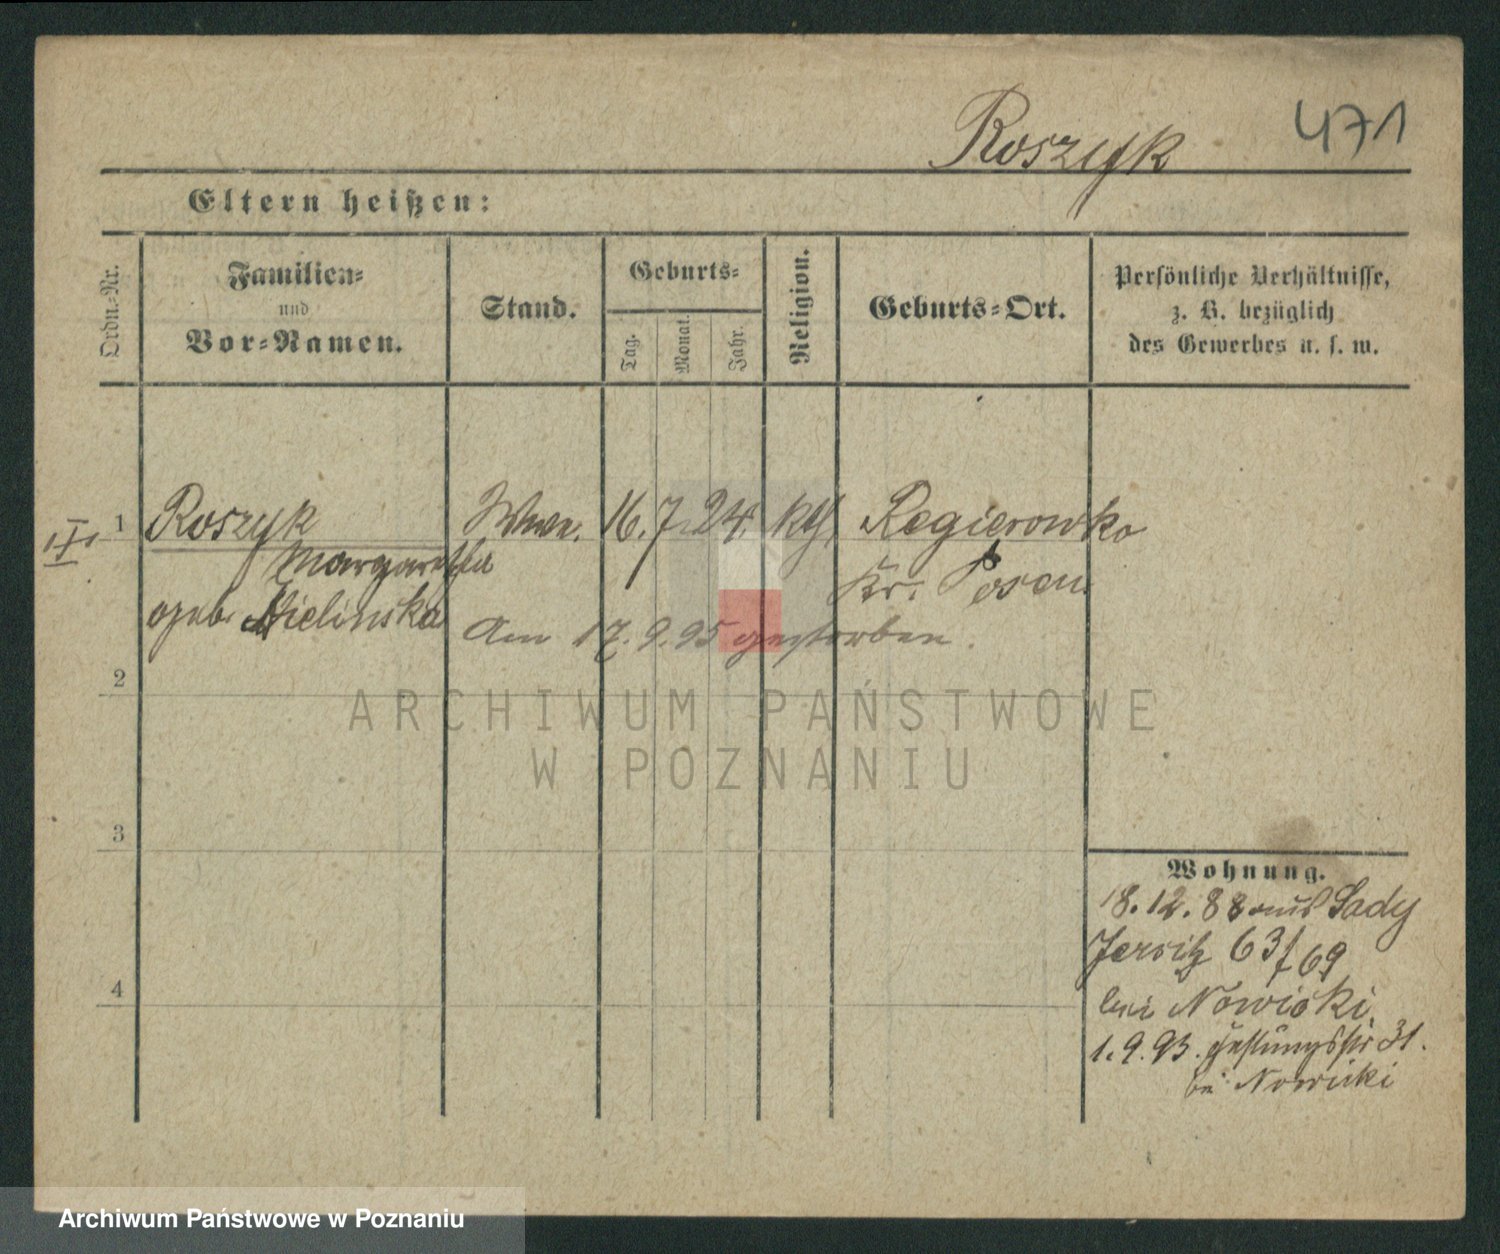 Roszyk 471
Eltern heißen:
Ordn.-Nr.
Familien-
und
Vor-Namen.
Stand.
Geburts-
Tag.
Monat.
Jahr.
Religion.
Geburts-Ort.
Persönliche Verhältnisse,
z. B. bezüglich
des Gewerbes u. s. w.
III
1 Roszyk Wwe. 16. 7. 24. kth Regierowko
Margaretha Kr. Posen
geb. Mielinska Am 17. 9. 95 gestorben.
2
3
4
Wohnung.
18. 12. 88 aus Sady
Jersitz 63/69
bei Nowicki,
1. 9. 93. 31.
bei Nowicki
ARCHIWUM PAŃSTWOWE
W POZNANIU
Archiwum Państwowe w Poznaniu